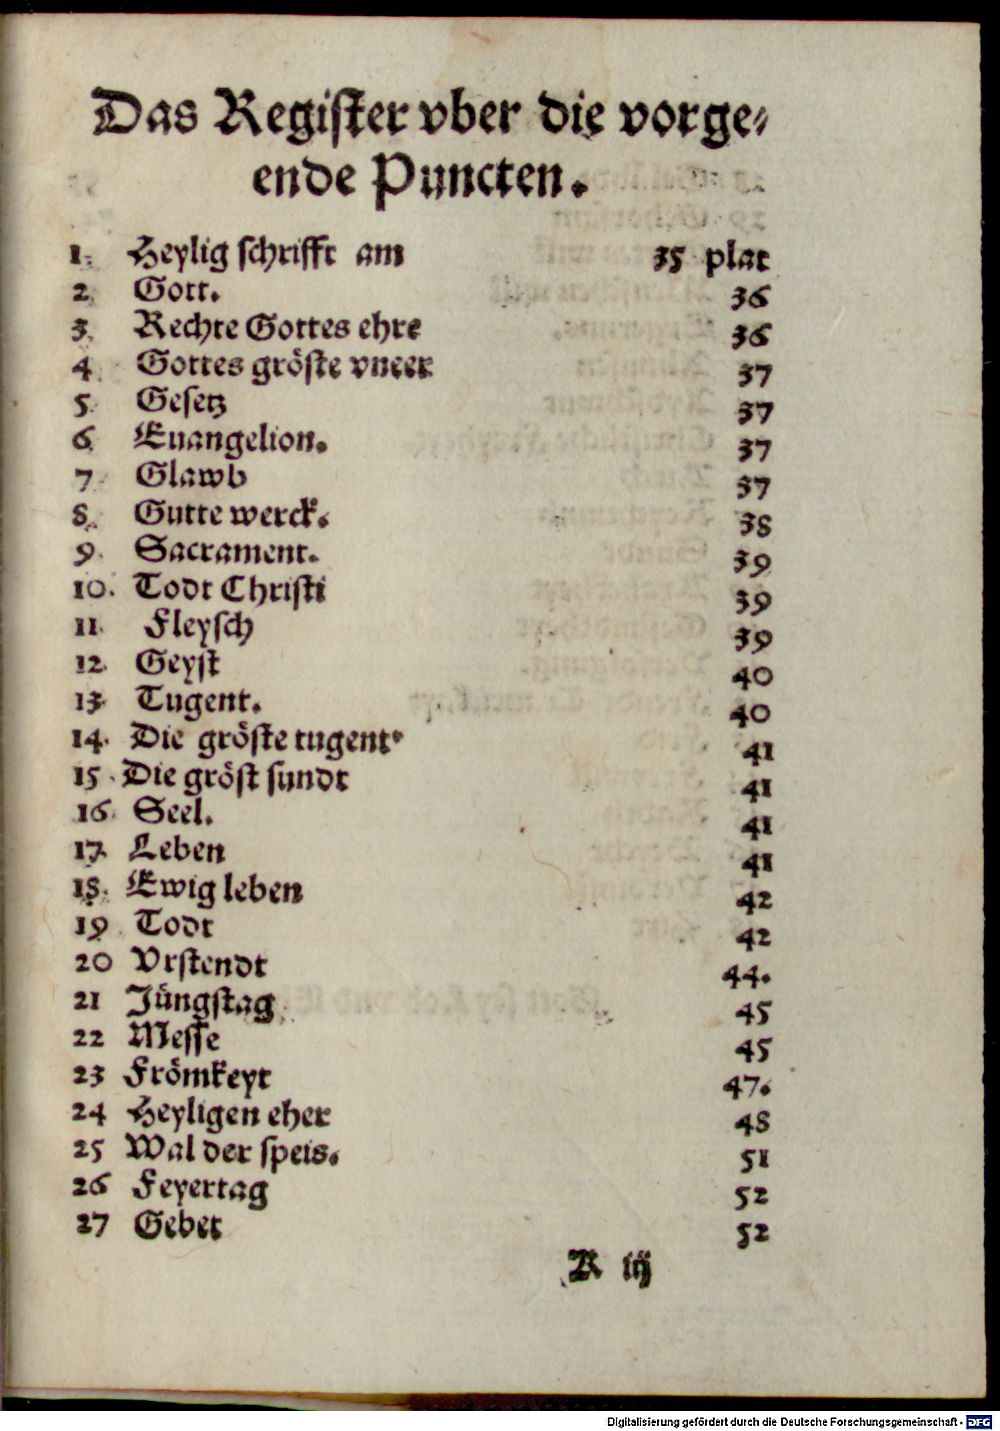 Das Register vber die vorge⸗
ende Puncten.
1. Heylig schrifft am 35 plat
2. Gott. 36
3. Rechte Gottes ehre 36
4. Gottes gröste vneer 37
5. Gesetz 37
6. Euangelion. 37
7. Glawb 37
8. Gutte werck. 38
9. Sacrament. 39
10. Todt Christi 39
11. Fleysch 39
12. Geyst 40
13. Tugent. 40
14. Die gröste tugent. 41
15. Die gröst sundt 41
16. Seel. 41
17. Leben 41
18. Ewig leben 42
19. Todt 42
20 Vrstendt 44.
21 Jüngstag 45
22 Messe 45
23 Frömkeyt 47.
24 Heyligen eher 48
25 Wal der speis. 51
26 Feyertag 52
27 Gebet 52
R iij
Digitalisierung gefördert durch die Deutsche Forschungsgemeinschaft - DFG